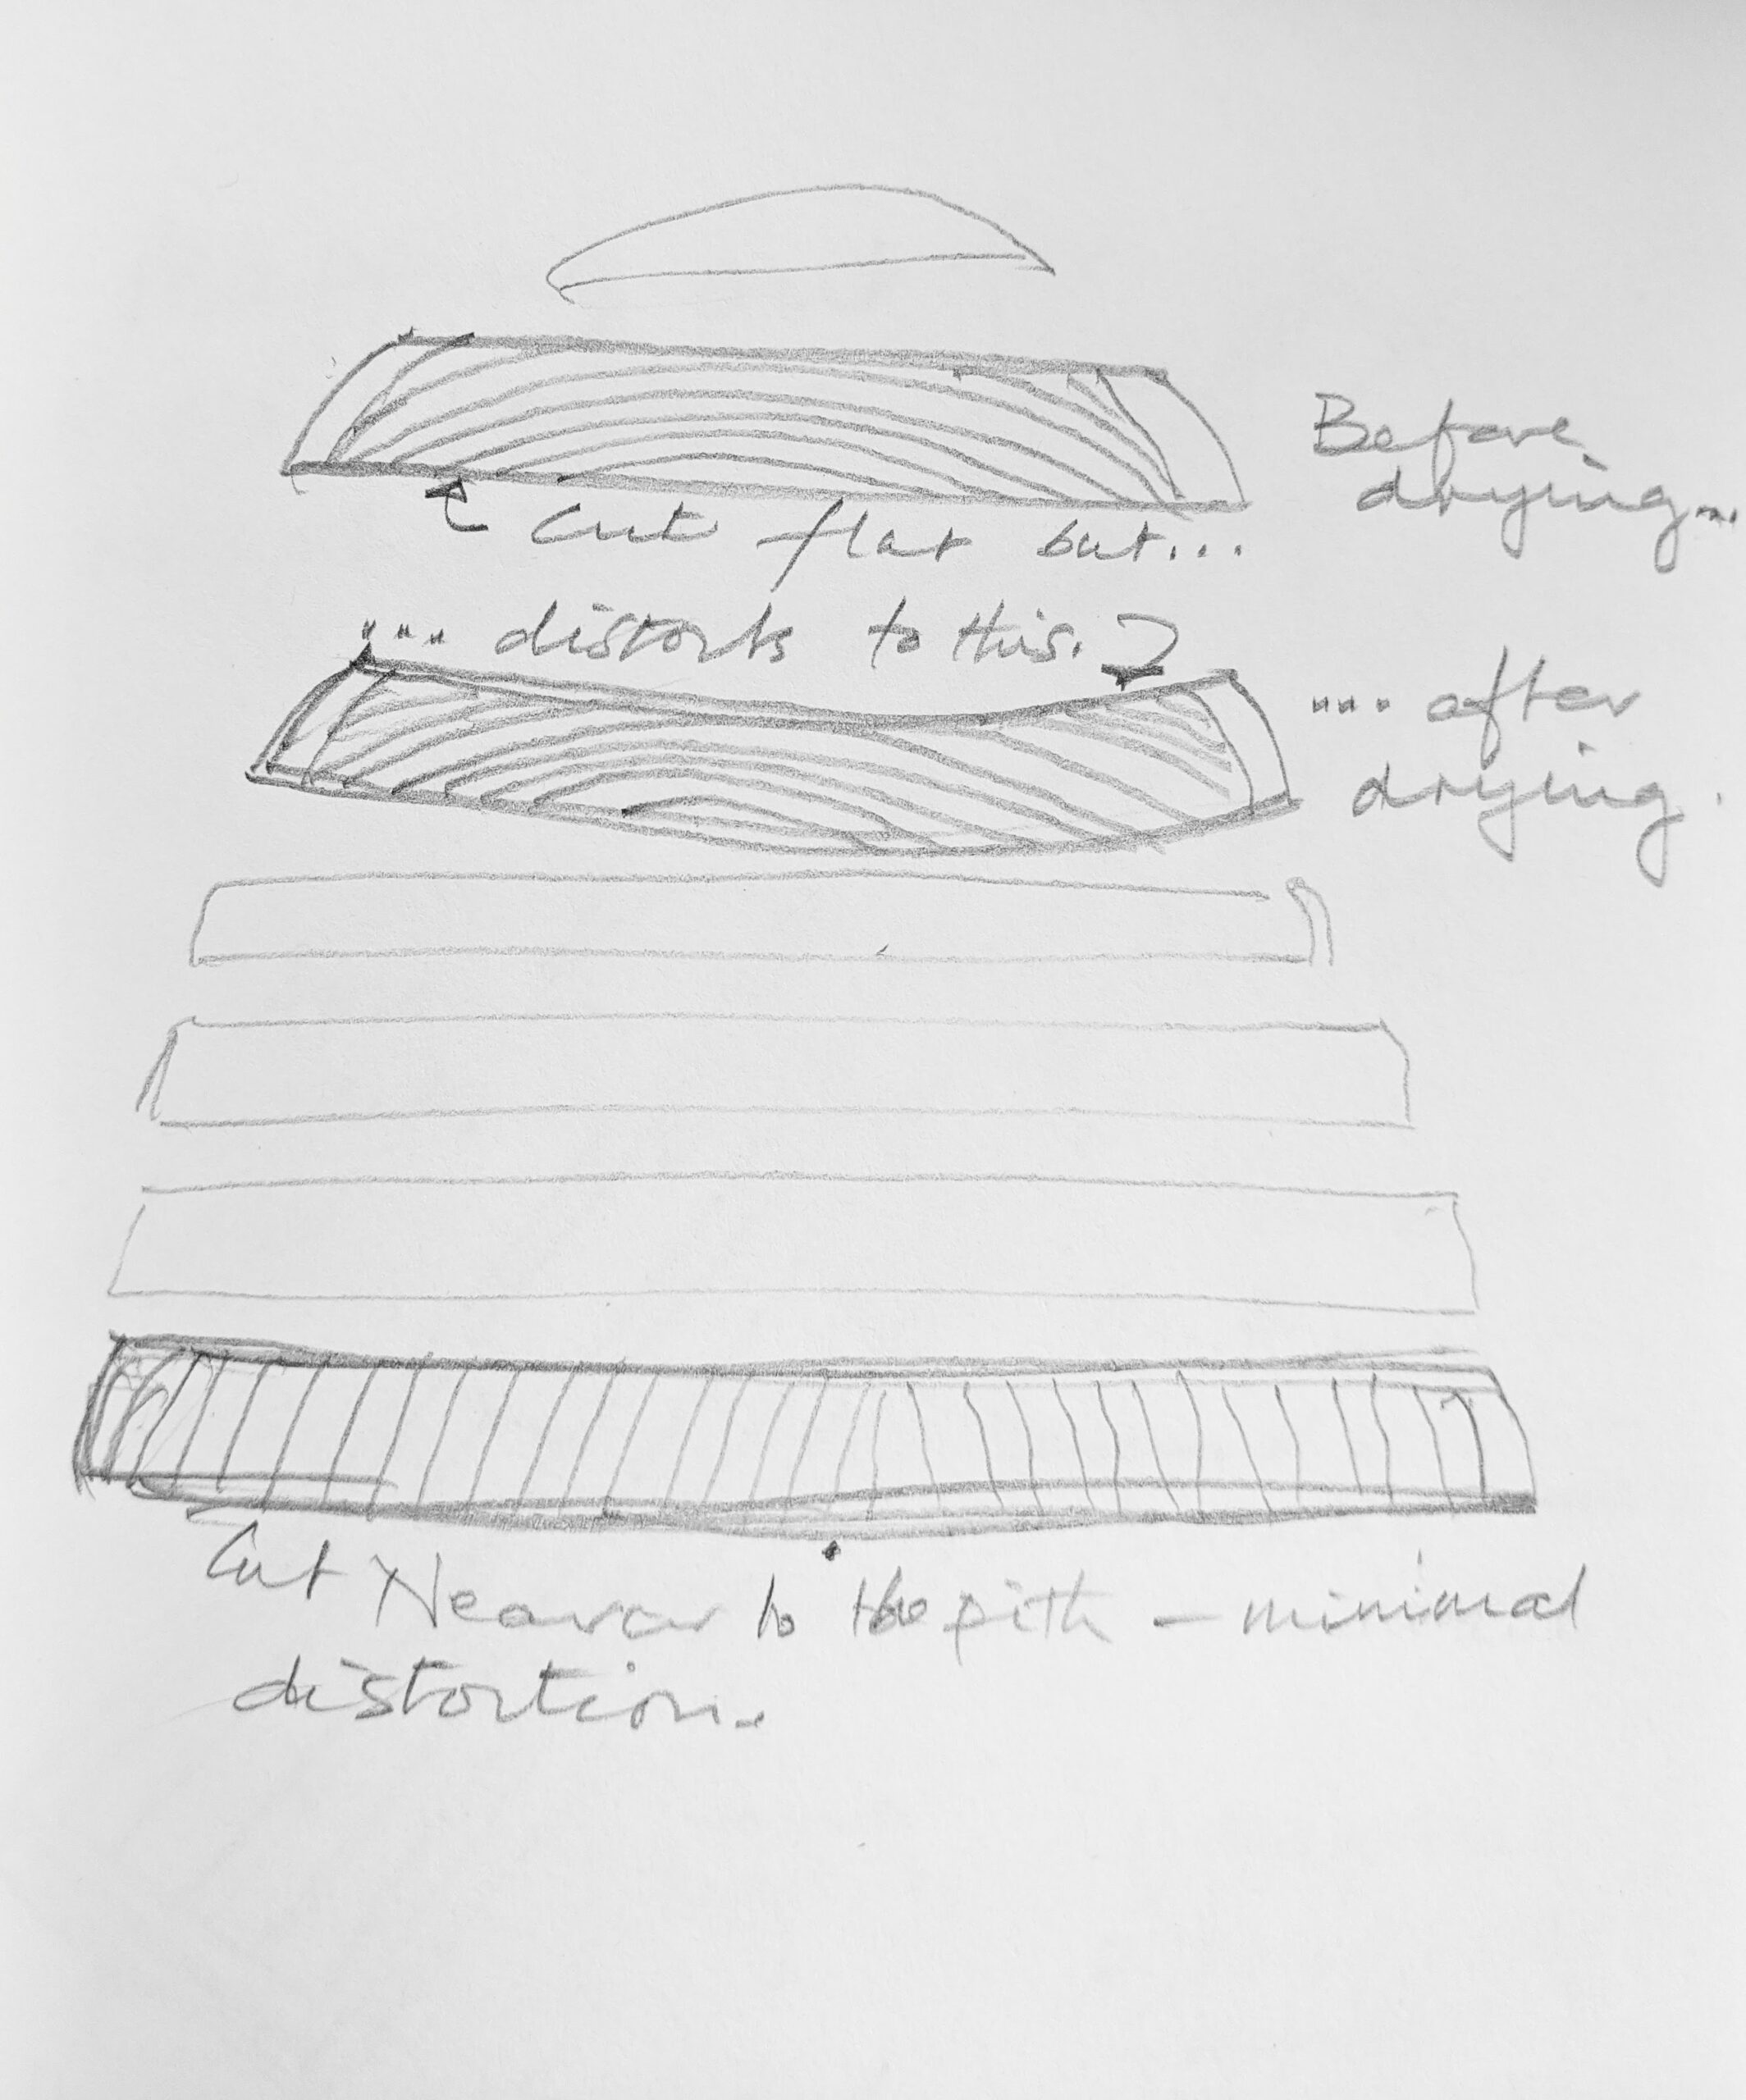 Before
drying...
Cut flat but...
... distorts to this.
.... after
drying.
Cut Nearer to the pith – minimal
distortion.